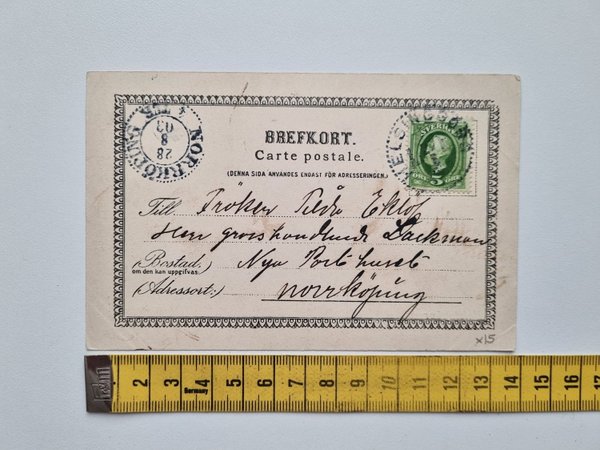 BREFKORT.
Carte postale.
(DENNA SIDA ANVÄNDES ENDAST FÖR ADRESSERINGEN.)
NORRKÖPING
28
8
03
5
Till Fröken Tilda Eklöf
Herr grosshandlande Lackman
(Bostad:
om den kan uppgifvas.)
Nya Posthuset
(Adressort:) Norrköping
x15
2 3 4 5 6 7 8 9 10 11 12 13 14 15 16 17
Germany